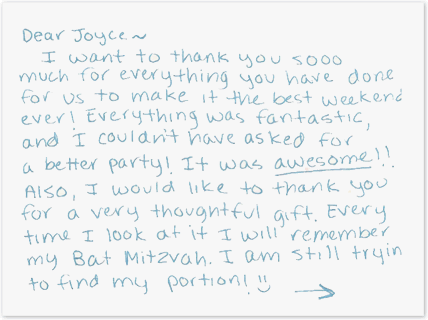 Dear Joyce~
I want to thank you sooo
much for everything you have done
for us to make it the best weekend
ever! Everything was fantastic,
and I couldn't have asked for
a better party! It was awesome!!
Also, I would like to thank you
for a very thoughtful gift. Every
time I look at it I will remember
my Bat Mitzvah. I am still tryin
to find my portion! :) →